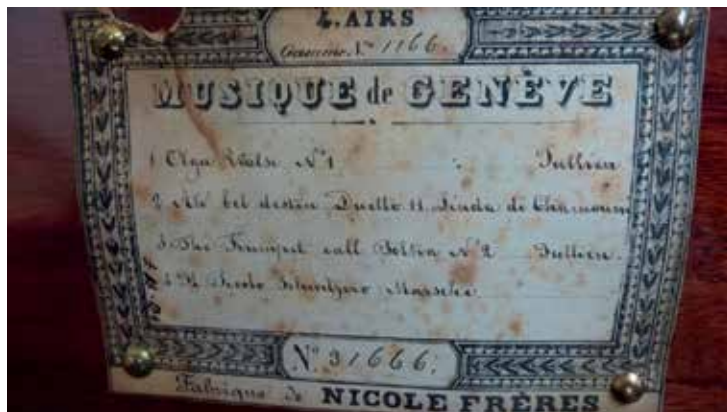 4. AIRS
Gamme No. 1166.
MUSIQUE de GENÈVE
1 Olga Walse No 1 Jullien
2 Ah! bel destin Duetto Linda de Chamouni
3 The Trumpet call No 2 Jullien.
4
No 31666.
Fabrique de NICOLE FRÈRES